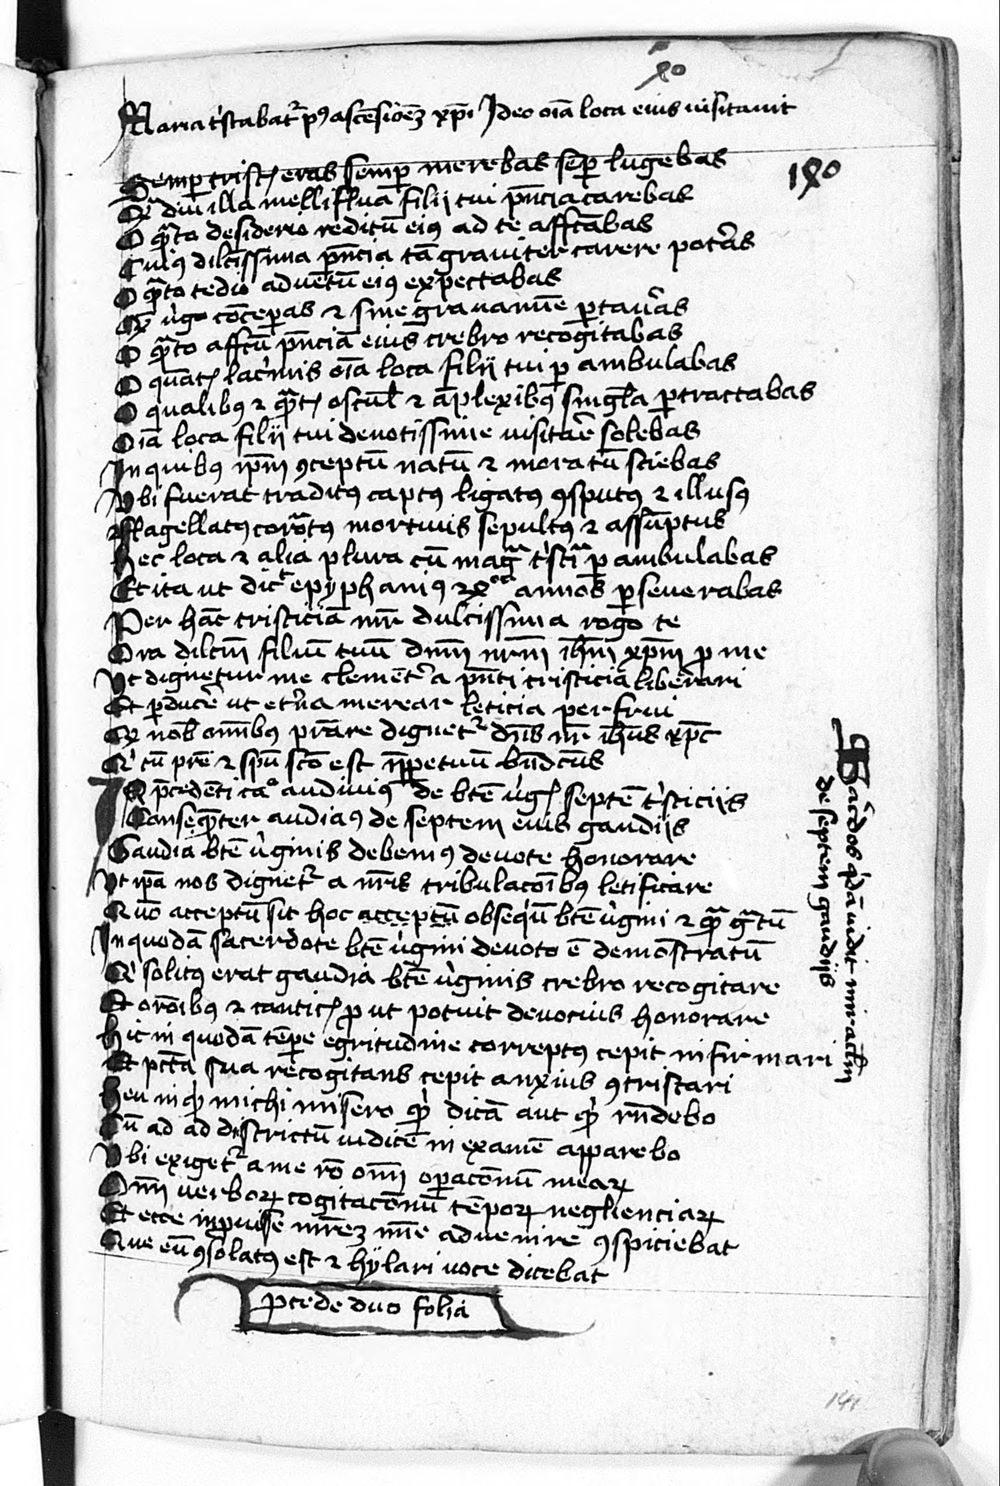 Maria tristabatᷣ pꝰ ascēsiōꝫ xp̄i Ideo oīa loca eius uisitauit
Semꝑ tristꝭ eras semꝑ merebas sēꝑ lugebas
Qᷓ diu illa melliflua filij tui pn̄cia carebas
O qᷓto desiderio reditū eiꝰ ad te affc̄abas
Cuiꝰ dilc̄issima pn̄cia tā grauiter carere potᷣas
O qᷓto tedio aduētū eiꝰ expectabas
Qᷓ uͥgo cōceꝑas ⁊ sine grauamīe ꝑtauᷣas
O qᷓto affc̄u pn̄ciā eius crebro recogitabas
O quātꝭ lacͥmis oīa loca filij tui ꝑambulabas
O qualibꝰ ⁊ qᷓtꝭ oscul̄ ⁊ āplexibꝰ singl̄a ꝑtractabas
Oīa loca filij tui deuotissime uisitare solebas
In quibꝰ ip̄m ꝯceptū natū ⁊ moratū sciebas
Vbi fuerat traditꝰ captꝰ ligatꝰ ꝯsputꝰ ⁊ illusꝰ
Flagellatꝰ coron̄tꝰ mortuus sepultꝰ ⁊ assūptus
Hec loca ⁊ alia plura cū magᷓ tͥstiᷓ ꝑambulabas
Et ita ut dicͭ epyphaniꝰ annos ꝑseuerabas
Per hāc tristiciā mr̄ dulcissima rogo te
Ora dilc̄m filium tuū dn̄m nr̄m ih̄m xp̄m ꝓ me
Vt dignetur me clemēt̾ a pn̄ti tristicia liberari
Et ꝑducᷣe ut etᷣna merear leticia perfrui
Qᷓ nob̄ om̄ibus prāre dignetᷣ dn̄s nr̄ ih̄us xp̄c
Qͥ cū pr̄e ⁊ sp̄u sc̄o est inꝑpetuū bn̄dc̄us
In p̄cedēti caᵒ audiuimꝰ de btē uͥgꝭ septē tͥsticijs
Conseqᷓter audiaꝰ de septem eius gaudijs
Gaudia btē uͥginis debemꝰ deuote honorare
Vt ip̄a nos dignetᷣ a nr̄is tribulacōibꝰ letificare
Quō acceptū sit hoc acceptū obseqͥū btē uͥgini ⁊ qᷓ gᷓtū
In quodā sacerdote btē uͥgini deuoto ē demonstratū
Qͥ solitꝰ erat gaudia btē uͥginis crebro recogitare
Et orōibꝰ ⁊ canticꝭ ꝓ ut potuit deuocius honorare
Hic in quodā tēꝑe egritudine correptꝰ cepit infirmari
Et pctā sua recogitans cepit anxius ꝯtristari
Heu inqͥ michi misero qͥd dicā aut qͥd rn̄debo
Cū ad ad districtū iudicē in examē apparebo
Vbi exigetᷣ a me rō om̄i oꝑacōnū mearꝝ
Om̄i uerborꝝ cogitacōnū tēporꝝ neglienciarꝝ
Et ecce inprouisse mr̄eꝫ mīe aduenire ꝯspiciebat
Que eū ꝯsolatꝰ est ⁊ hylari uoce dicebat
p̄cede duo folia
Sacᷣdos qͥdā uidit miracl̄m
de septem gaudijs
141